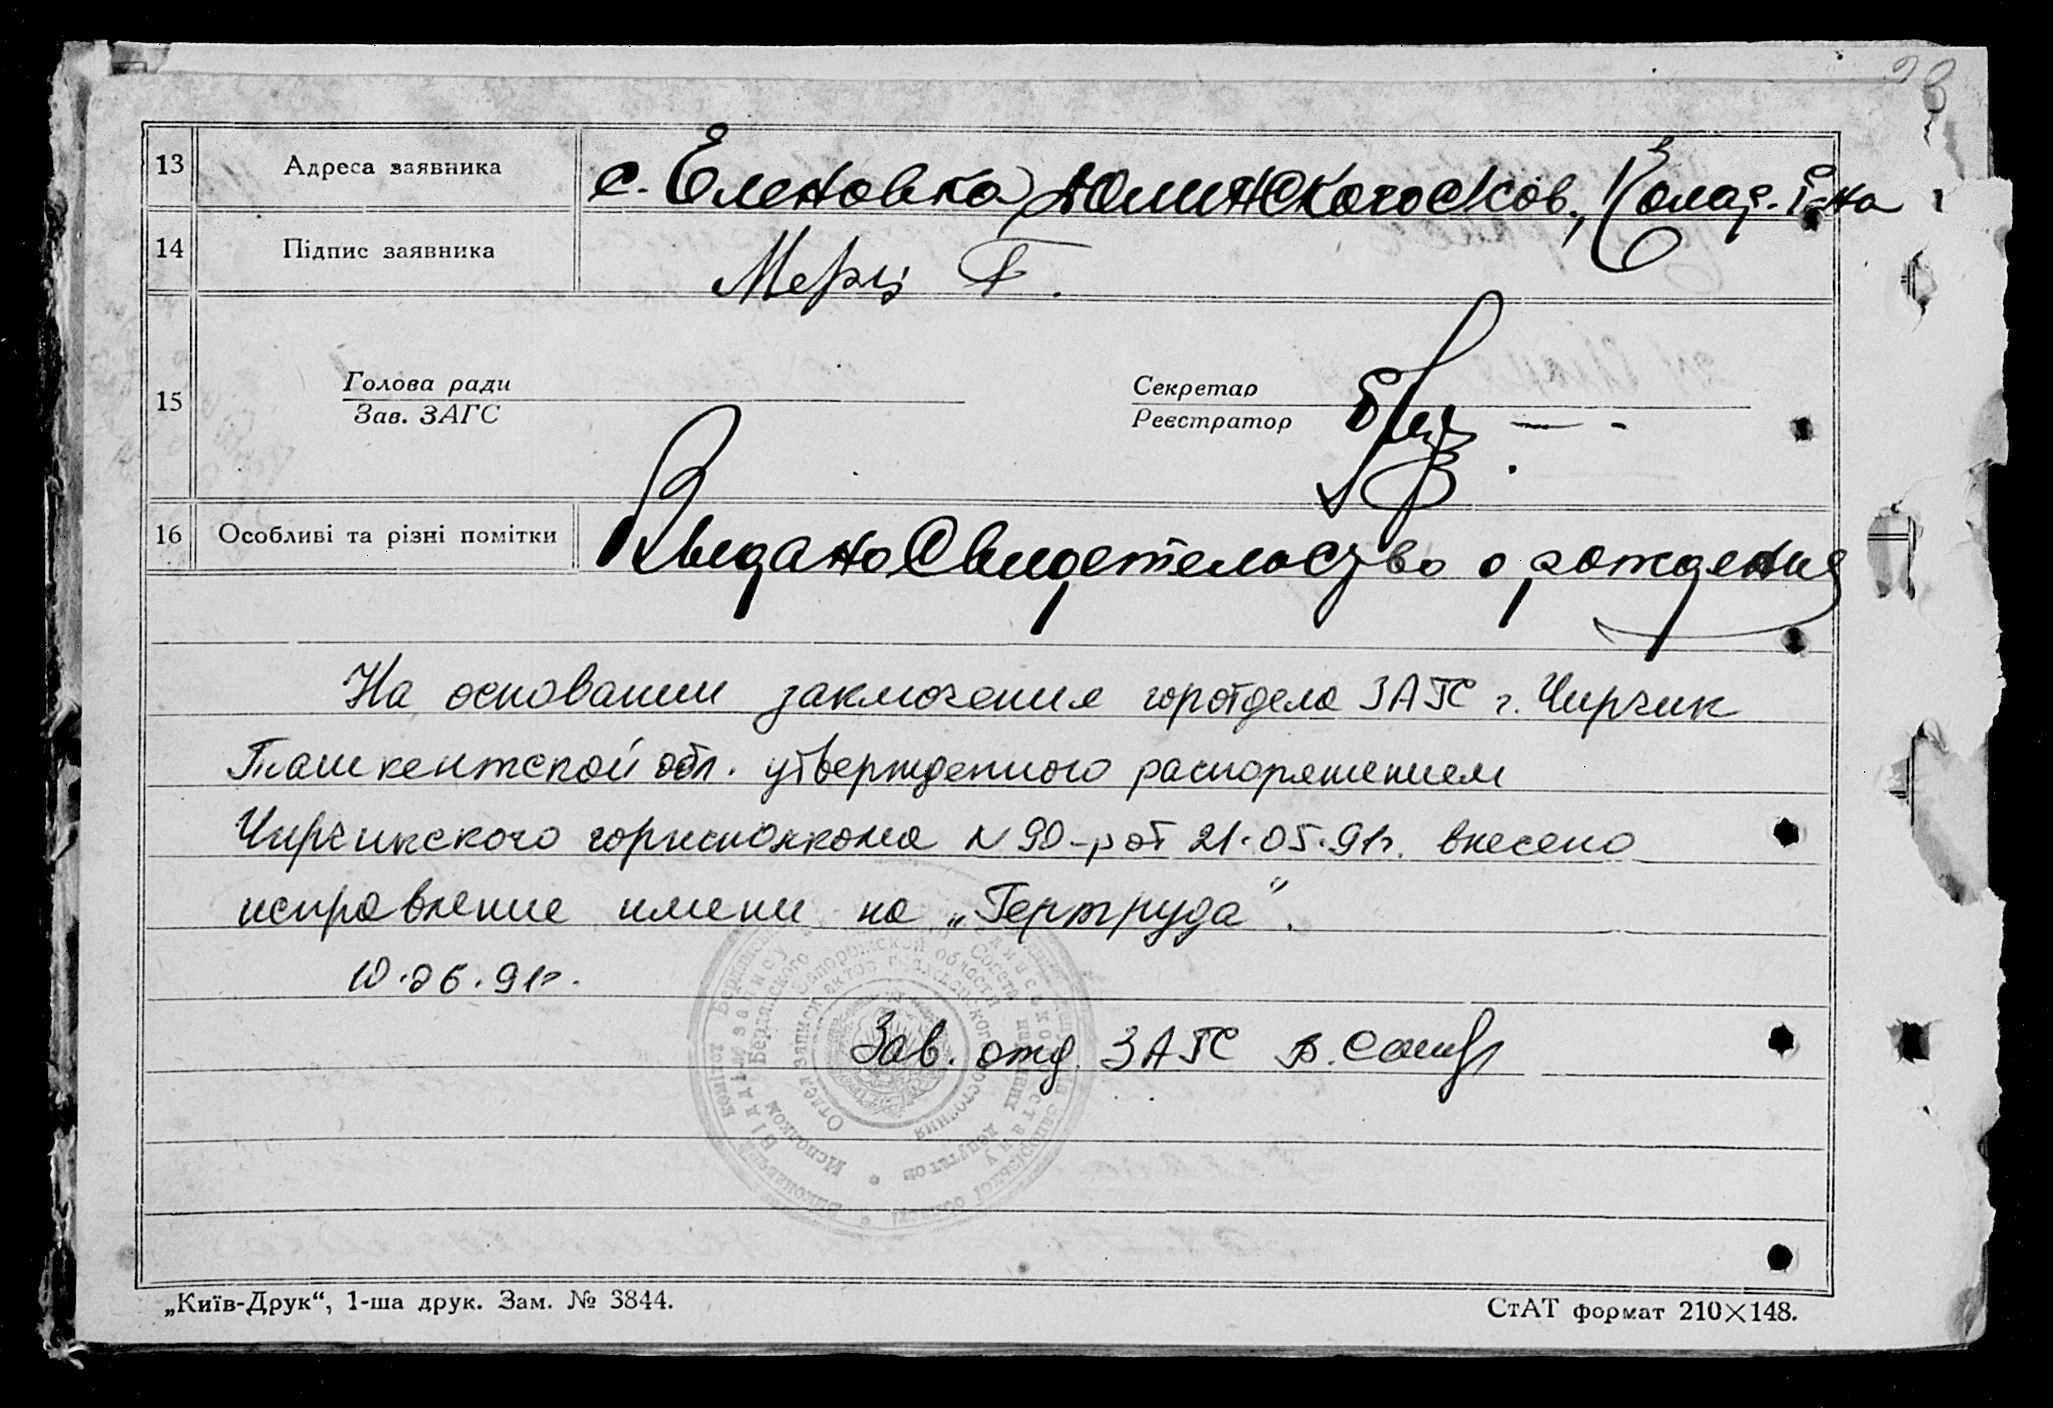 28
13 Адреса заявника с. Еленовка
14 Підпис заявника Мерц Г.
15 Голова ради
Зав. ЗАГС
Секретар
Реєстратор
16 Особливі та різні помітки Выдано Свидетельство о рождении
На основании заключения горотдела ЗАГС г. Чирчик
Ташкентской обл. утвержденного распоряжением
Чирчикского горисполкома N 90-р от 21.05.91г. внесено
исправление имени на „Гертруда“.
10.06.91г.
Зав. отд. ЗАГС В.
Отдел записи актов гражданского состояния
„Київ-Друк“, 1-ша друк. Зам. № 3844.
СтАТ формат 210×148.